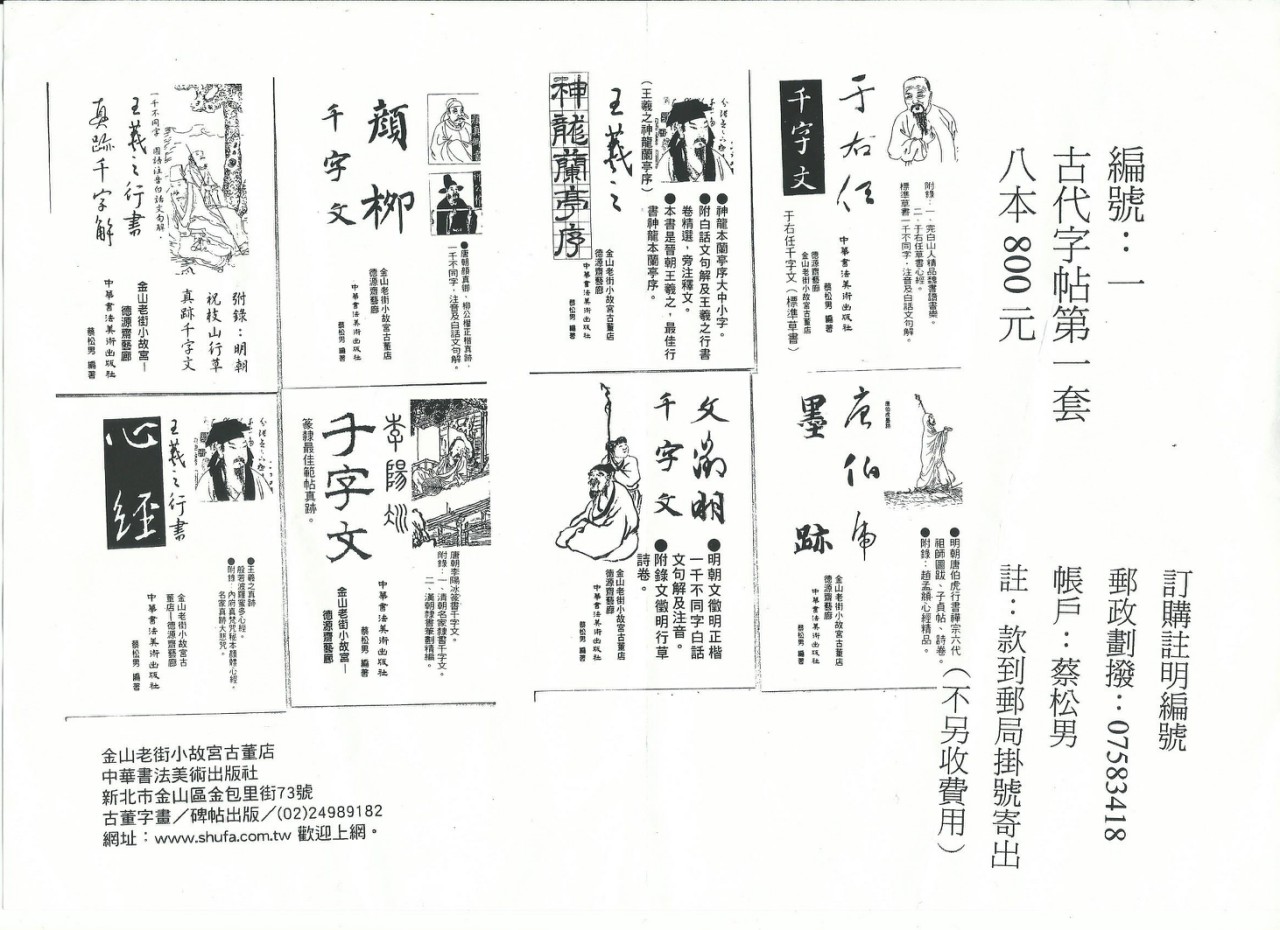 編號：一
古代字帖第一套
八本 800 元
訂購註明編號
郵政劃撥：07583418
帳戶：蔡松男
註：款到郵局掛號寄出
（不另收費用）
于右任
千字文
附錄：一、完白山人精品魏書語書樂。
二、于右任草書心經。
標準草書一千不同字，注音及白話文句解。
中華書法美術出版社
蔡松男 編著
金山老街小故宮古董店
德源齋藝廊
于右任千字文（標準草書）
王羲之
神龍蘭亭序
（王羲之神龍蘭亭序）
●神龍本蘭亭序大中小字。
●附白話文句解及王羲之行書
卷精選，旁注釋文。
●本書是晉朝王羲之，最佳行
書神龍本蘭亭序。
金山老街小故宮古董店
德源齋藝廊
中華書法美術出版社
蔡松男 編著
顏柳
千字文
●唐朝顏真卿、柳公權正楷真跡，
一千不同字，注音及白話文句解。
金山老街小故宮古董店
德源齋藝廊
中華書法美術出版社
蔡松男 編著
一千不同字 國語注音白話文句解.
王羲之行書
真跡千字解
附錄：明朝
祝枝山行草
真跡千字文
金山老街小故宮—
德源齋藝廊
中華書法美術出版社
蔡松男 編著
唐伯虎
墨跡
●明朝唐伯虎行書禪宗六代
祖師圖跋、子貞帖、詩卷。
●附錄：趙孟頫心經精品。
金山老街小故宮古董店
德源齋藝廊
中華書法美術出版社
蔡松男 編著
文徵明
千字文
●明朝文徵明正楷
一千不同字白話
文句解及注音。
●附錄文徵明行草
詩卷。
金山老街小故宮古董店
德源齋藝廊
中華書法美術出版社
蔡松男 編著
李陽冰
千字文
篆隸最佳範帖真跡。
唐朝李陽冰篆書千字文。
附錄：一、清朝名家隸書千字文。
二、漢朝隸書筆劃精編。
中華書法美術出版社
蔡松男 編著
金山老街小故宮—
德源齋藝廊
王羲之行書
心經
●王羲之真跡
般若波羅蜜多心經。
●附錄：內府真梵咒秘本顏體心經。
名家真跡大悲咒。
金山老街小故宮古
董店—德源齋藝廊
中華書法美術出版社
蔡松男 編著
金山老街小故宮古董店
中華書法美術出版社
新北市金山區金包里街73號
古董字畫／碑帖出版／(02)24989182
網址：www.shufa.com.tw 歡迎上網。